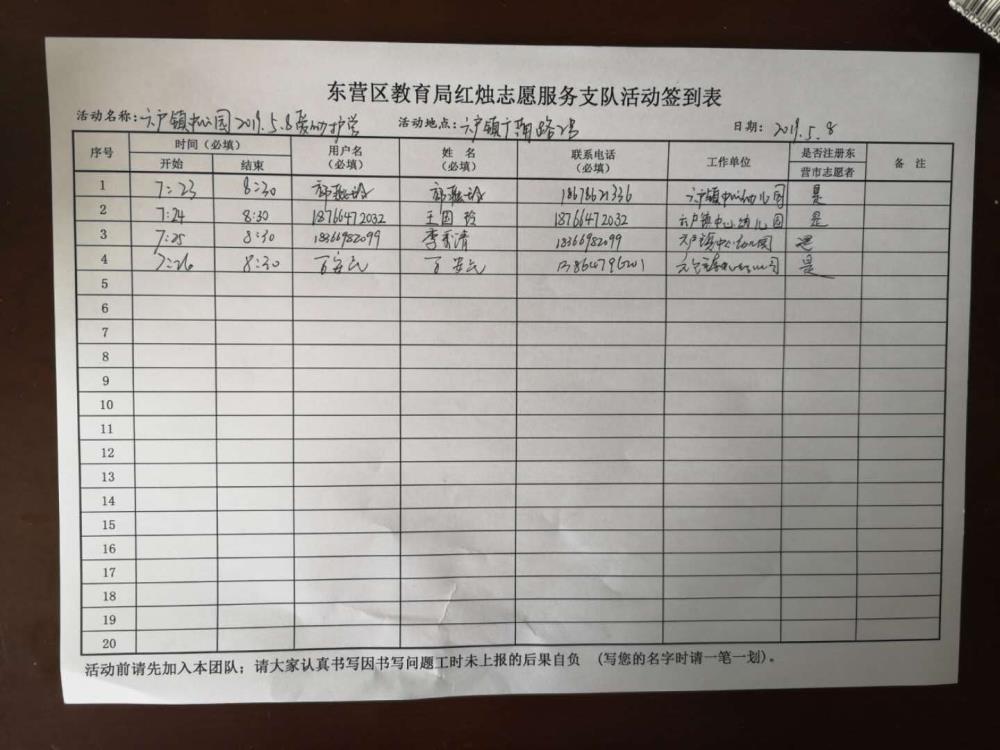 东营区教育局红烛志愿服务支队活动签到表
活动名称:六户镇中心园2019.5.8爱心护学 活动地点:六户镇广翔路2号 日期: 2019.5.8
序号 时间(必填) 用户名(必填) 姓名(必填) 联系电话(必填) 工作单位 是否注册东营市志愿者 备注
开始 结束
1 7:23 8:30 18678621336 六户镇中心幼儿园 是
2 7:24 8:30 18766472032 王国玲 18766472032 六户镇中心幼儿园 是
3 7:25 8:30 18366982099 李秀清 18366982099 六户镇中心幼儿园 是
4 7:26 8:30 是
5
6
7
8
9
10
11
12
13
14
15
16
17
18
19
20
活动前请先加入本团队;请大家认真书写因书写问题工时未上报的后果自负 (写您的名字时请一笔一划)。